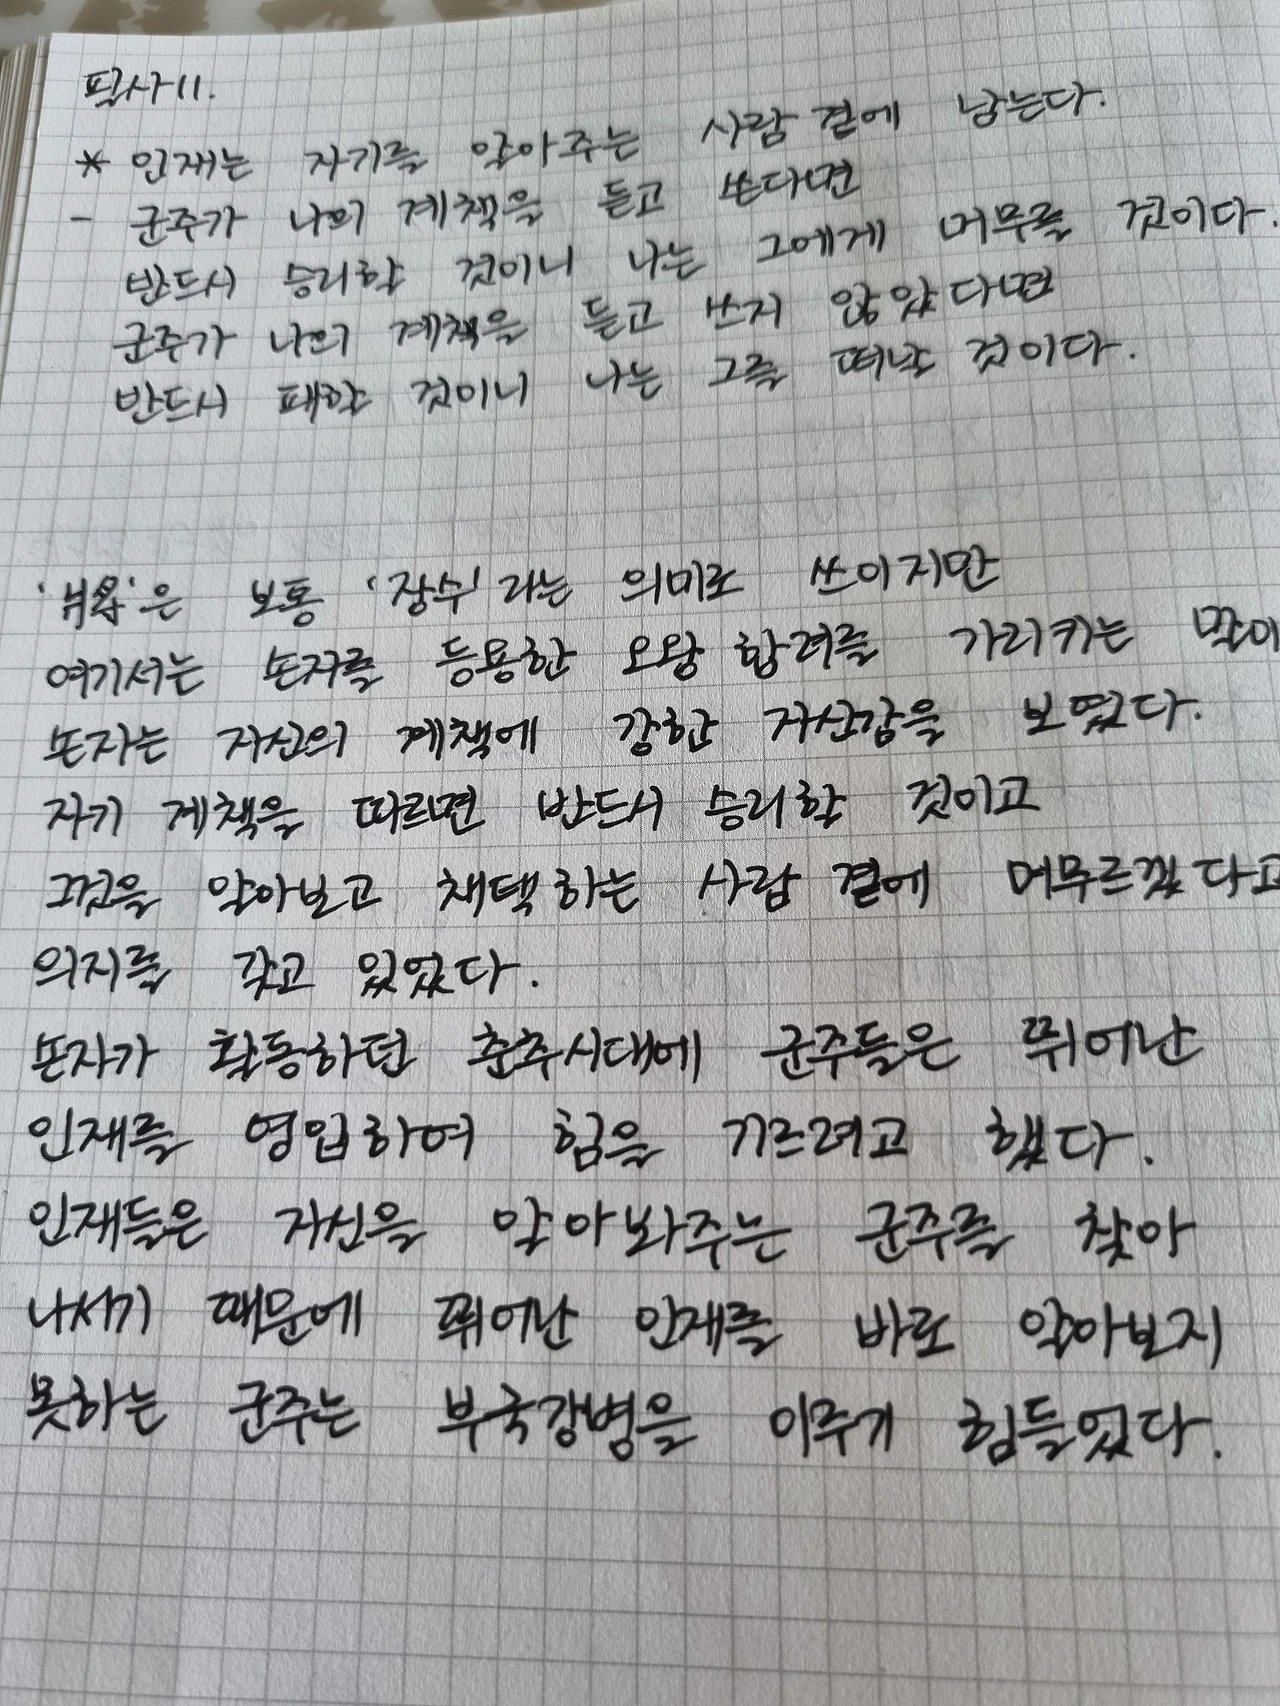 필사11.
* 인재는 자기를 알아주는 사람 곁에 남는다.
- 군주가 나의 계책을 듣고 쓴다면
반드시 승리할 것이니 나는 그에게 머무를 것이다.
군주가 나의 계책을 듣고 쓰지 않았다면
반드시 패할 것이니 나는 그를 떠날 것이다.
은 보통 '장수'라는 의미로 쓰이지만
여기서는 손자를 등용한 오왕 합려를 가리키는 말이
손자는 자신의 계책에 강한 자신감을 보였다.
자기 계책을 따르면 반드시 승리할 것이고
그것을 알아보고 채택하는 사람 곁에 머무르겠다고
의지를 갖고 있었다.
손자가 활동하던 춘추시대에 군주들은 뛰어난
인재를 영입하여 힘을 기르려고 했다.
인재들은 자신을 알아봐주는 군주를 찾아
나서기 때문에 뛰어난 인재를 바로 알아보지
못하는 군주는 부국강병을 이루기 힘들었다.